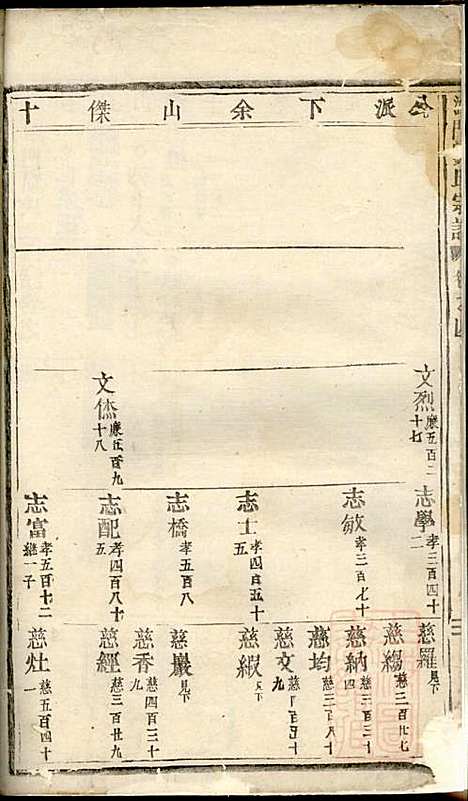 公派下余山傑十
氏宗譜
文烈 廉五百二十七
文傑 廉五百九十八
志學 孝三百四十二
志敏 孝三百七十
志士 孝四百五十五
志橋 孝五百八
志配 孝四百八十五
志富 孝五百十二 繼一子
慈羅 見下
慈緆 慈二百廿七
慈納 慈三百三十四
慈均 慈三百八十
慈文 慈百五十
慈緞 見下
慈嚴 見下
慈香 慈四百三十九
慈經 慈三百廿九
慈灶 慈五百四十一